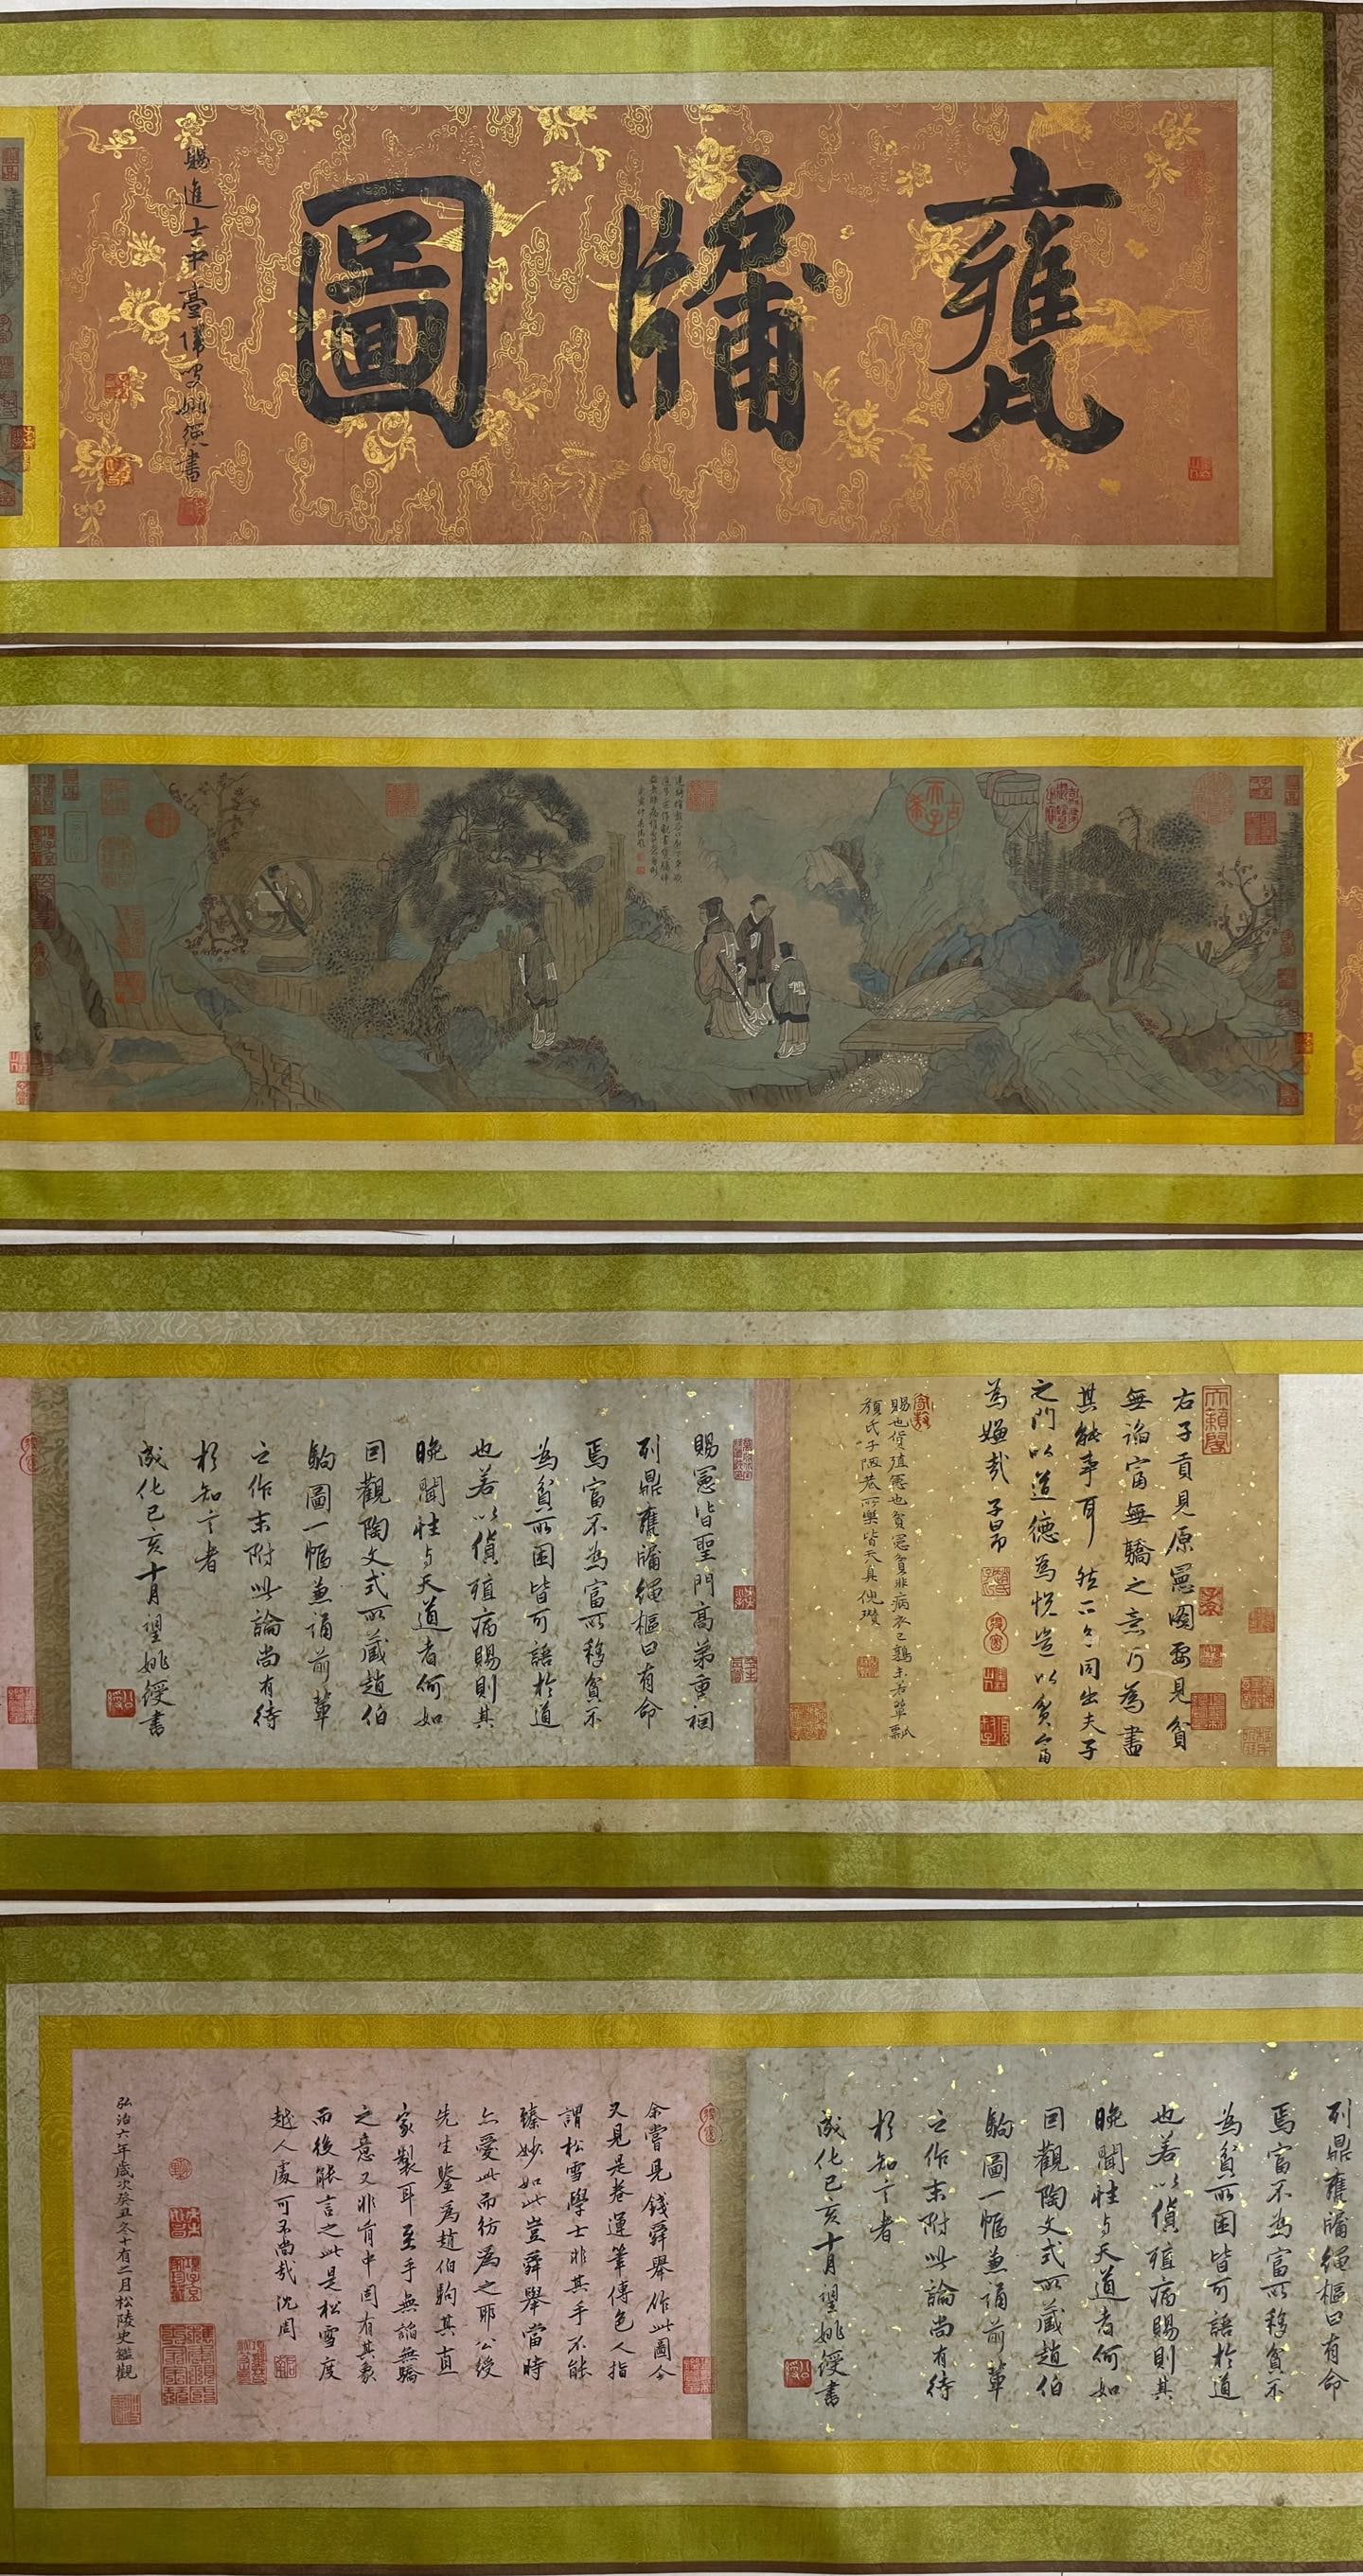 甕牖圖
賜進士中臺侍御姚綬書
右子貢見原憲圖要見貧
無諂富無驕之意乃為畫
其能事耳然二子同出夫子
之門以道德為悅豈以貧富
為嫌哉子昂
賜也貨殖憲也貧憲貧非病衣己鶉末若簞瓢
顏氏子陋巷所樂皆天真倪瓚
賜憲皆聖門高弟重裀
列鼎甕牖繩樞曰有命
焉富不為富所移貧不
為貧所困皆可語於道
也若以貨殖病賜則其
晚聞性與天道者何如
因觀陶文式所藏趙伯
駒圖一幅兼誦前輩
之作末附此論尚有待
於知言者
成化己亥十月望姚綬書
列鼎甕牖繩樞曰有命
焉富不為富所移貧不
為貧所困皆可語於道
也若以貨殖病賜則其
晚聞性與天道者何如
因觀陶文式所藏趙伯
駒圖一幅兼誦前輩
之作末附此論尚有待
於知言者
成化己亥十月望姚綬書
余嘗見錢舜舉作此圖今
又見是卷運筆傳色人指
謂松雪學士非其手不能
臻妙如此豈舜舉當時
亦愛此而仿為之耶公綬
先生鑒為趙伯駒其直
家製耳至乎無諂無驕
之意又非胷中固有其象
而後能言之此是松雪度
越人處可不尚哉沈周
弘治六年歲次癸丑冬十有二月松陵史鑑觀